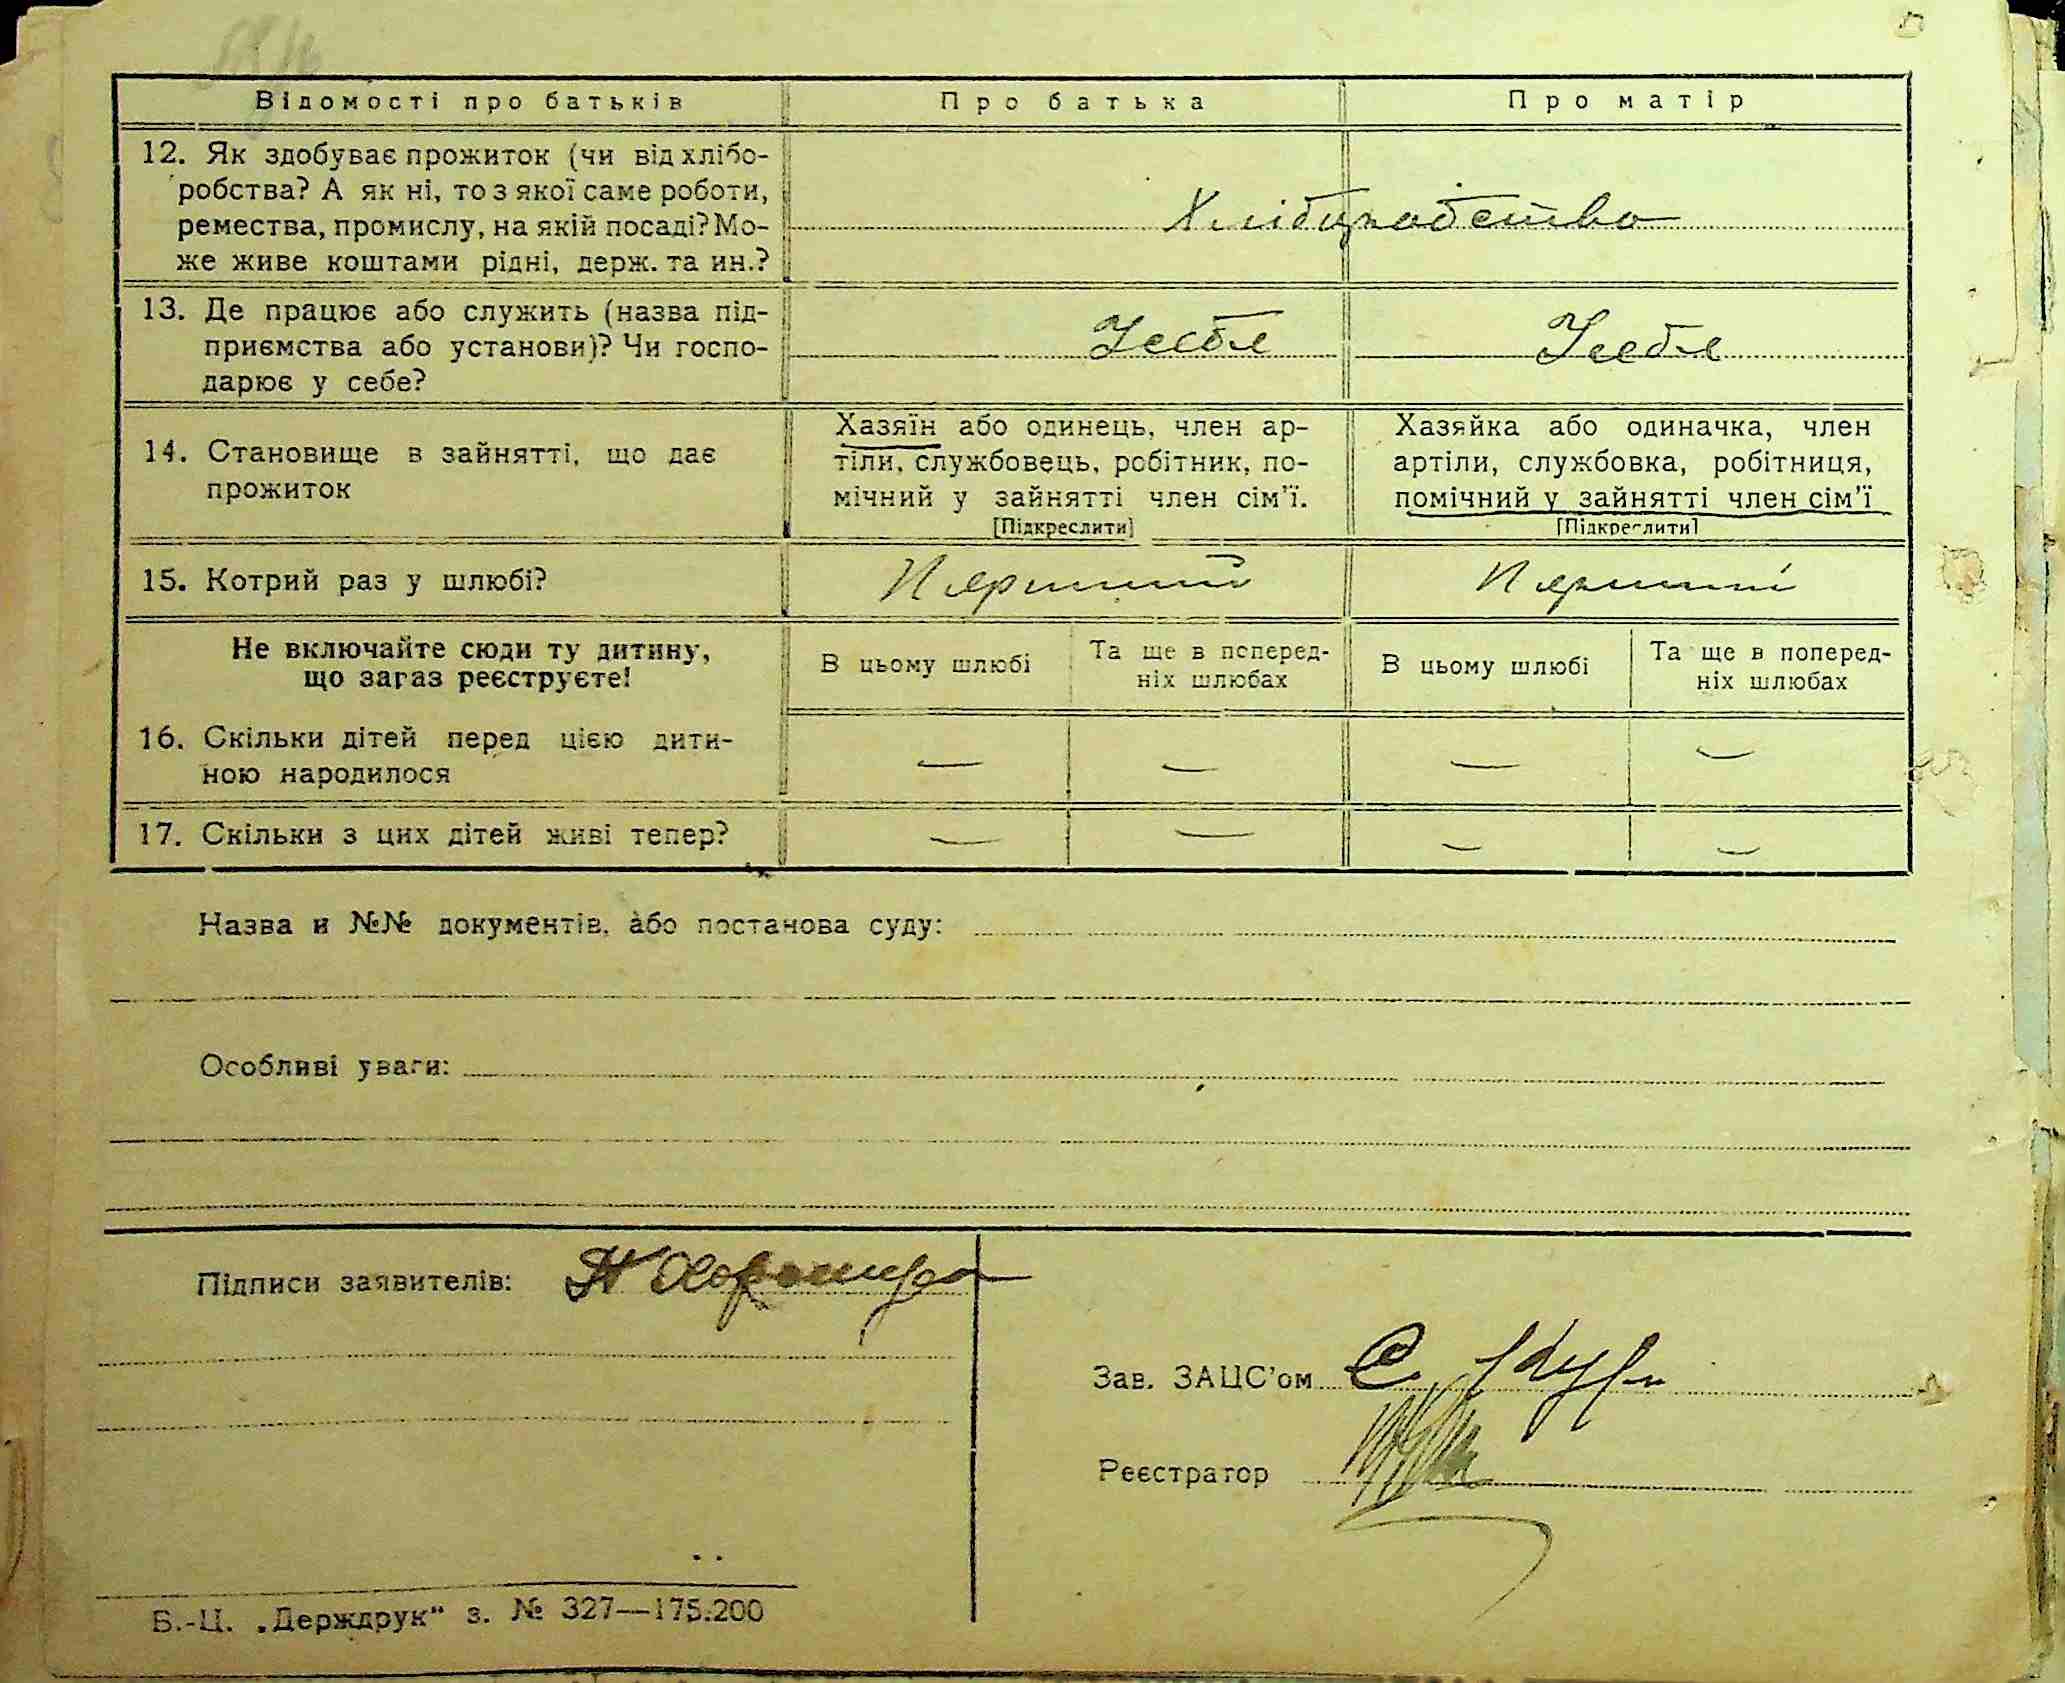 Відомості про батьків
Про батька
Про матір
12. Як здобуває прожиток (чи від хлібо-
робства? А як ні, то з якої саме роботи,
ремества, промислу, на якій посаді? Мо-
же живе коштами рідні, держ. та ин.?
Хліборобство
13. Де працює або служить (назва під-
приємства або установи)? Чи госпо-
дарює у себе?
У себе
У себе
14. Становище в зайнятті, що дає
прожиток
Хазяїн або одинець, член ар-
тіли, службовець, робітник, по-
мічний у зайнятті член сім'ї.
[Підкреслити]
Хазяйка або одиначка, член
артіли, службовка, робітниця,
помічний у зайнятті член сім'ї
[Підкреслити]
15. Котрий раз у шлюбі?
Перший
Перший
Не включайте сюди ту дитину,
що зараз реєструєте!
В цьому шлюбі
Та ще в поперед-
ніх шлюбах
В цьому шлюбі
Та ще в поперед-
ніх шлюбах
16. Скільки дітей перед цією дити-
ною народилося
— — — —
17. Скільки з цих дітей живі тепер?
— — — —
Назва и №№ документів, або постанова суду:
Особливі уваги:
Підписи заявителів:
Зав. ЗАЦС'ом
Реєстратор
Б.-Ц. „Держдрук" з. № 327—175.200